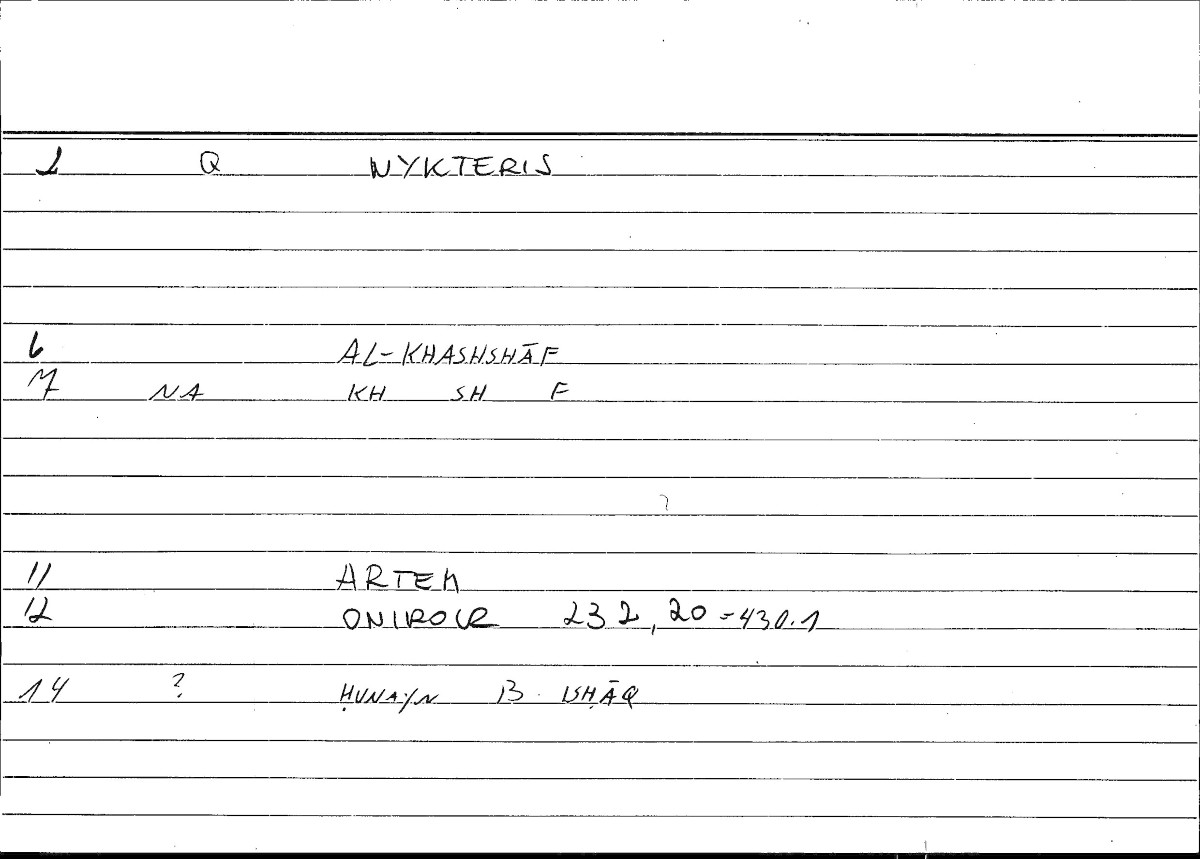 1 Q NYKTERIS
6 AL-KHASHSHĀF
7 NA KH SH F
11 ARTEM
12 ONIROCR 232,20=430.1
14 ? ḤUNAYN B. ISḤĀQ